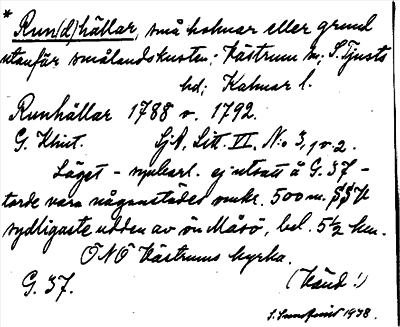 * Run(d)hällar, små holmar eller grund
utanför smålandskusten; Västrum sn; S. Tjusts
hd; Kalmar l.
Runhällar 1788 o. 1792.
G. Klint. SjA, Litt. VI, No 3, 1 o. 2.
Läget – synbarl. ej utsatt å G. 37 –
torde vara någonstädes omkr. 500 m. SSV
sydligaste udden av ön Måsö, bel. 5½ km.
ONO Västrums kyrka.
G. 37. (Känd!)
1938.